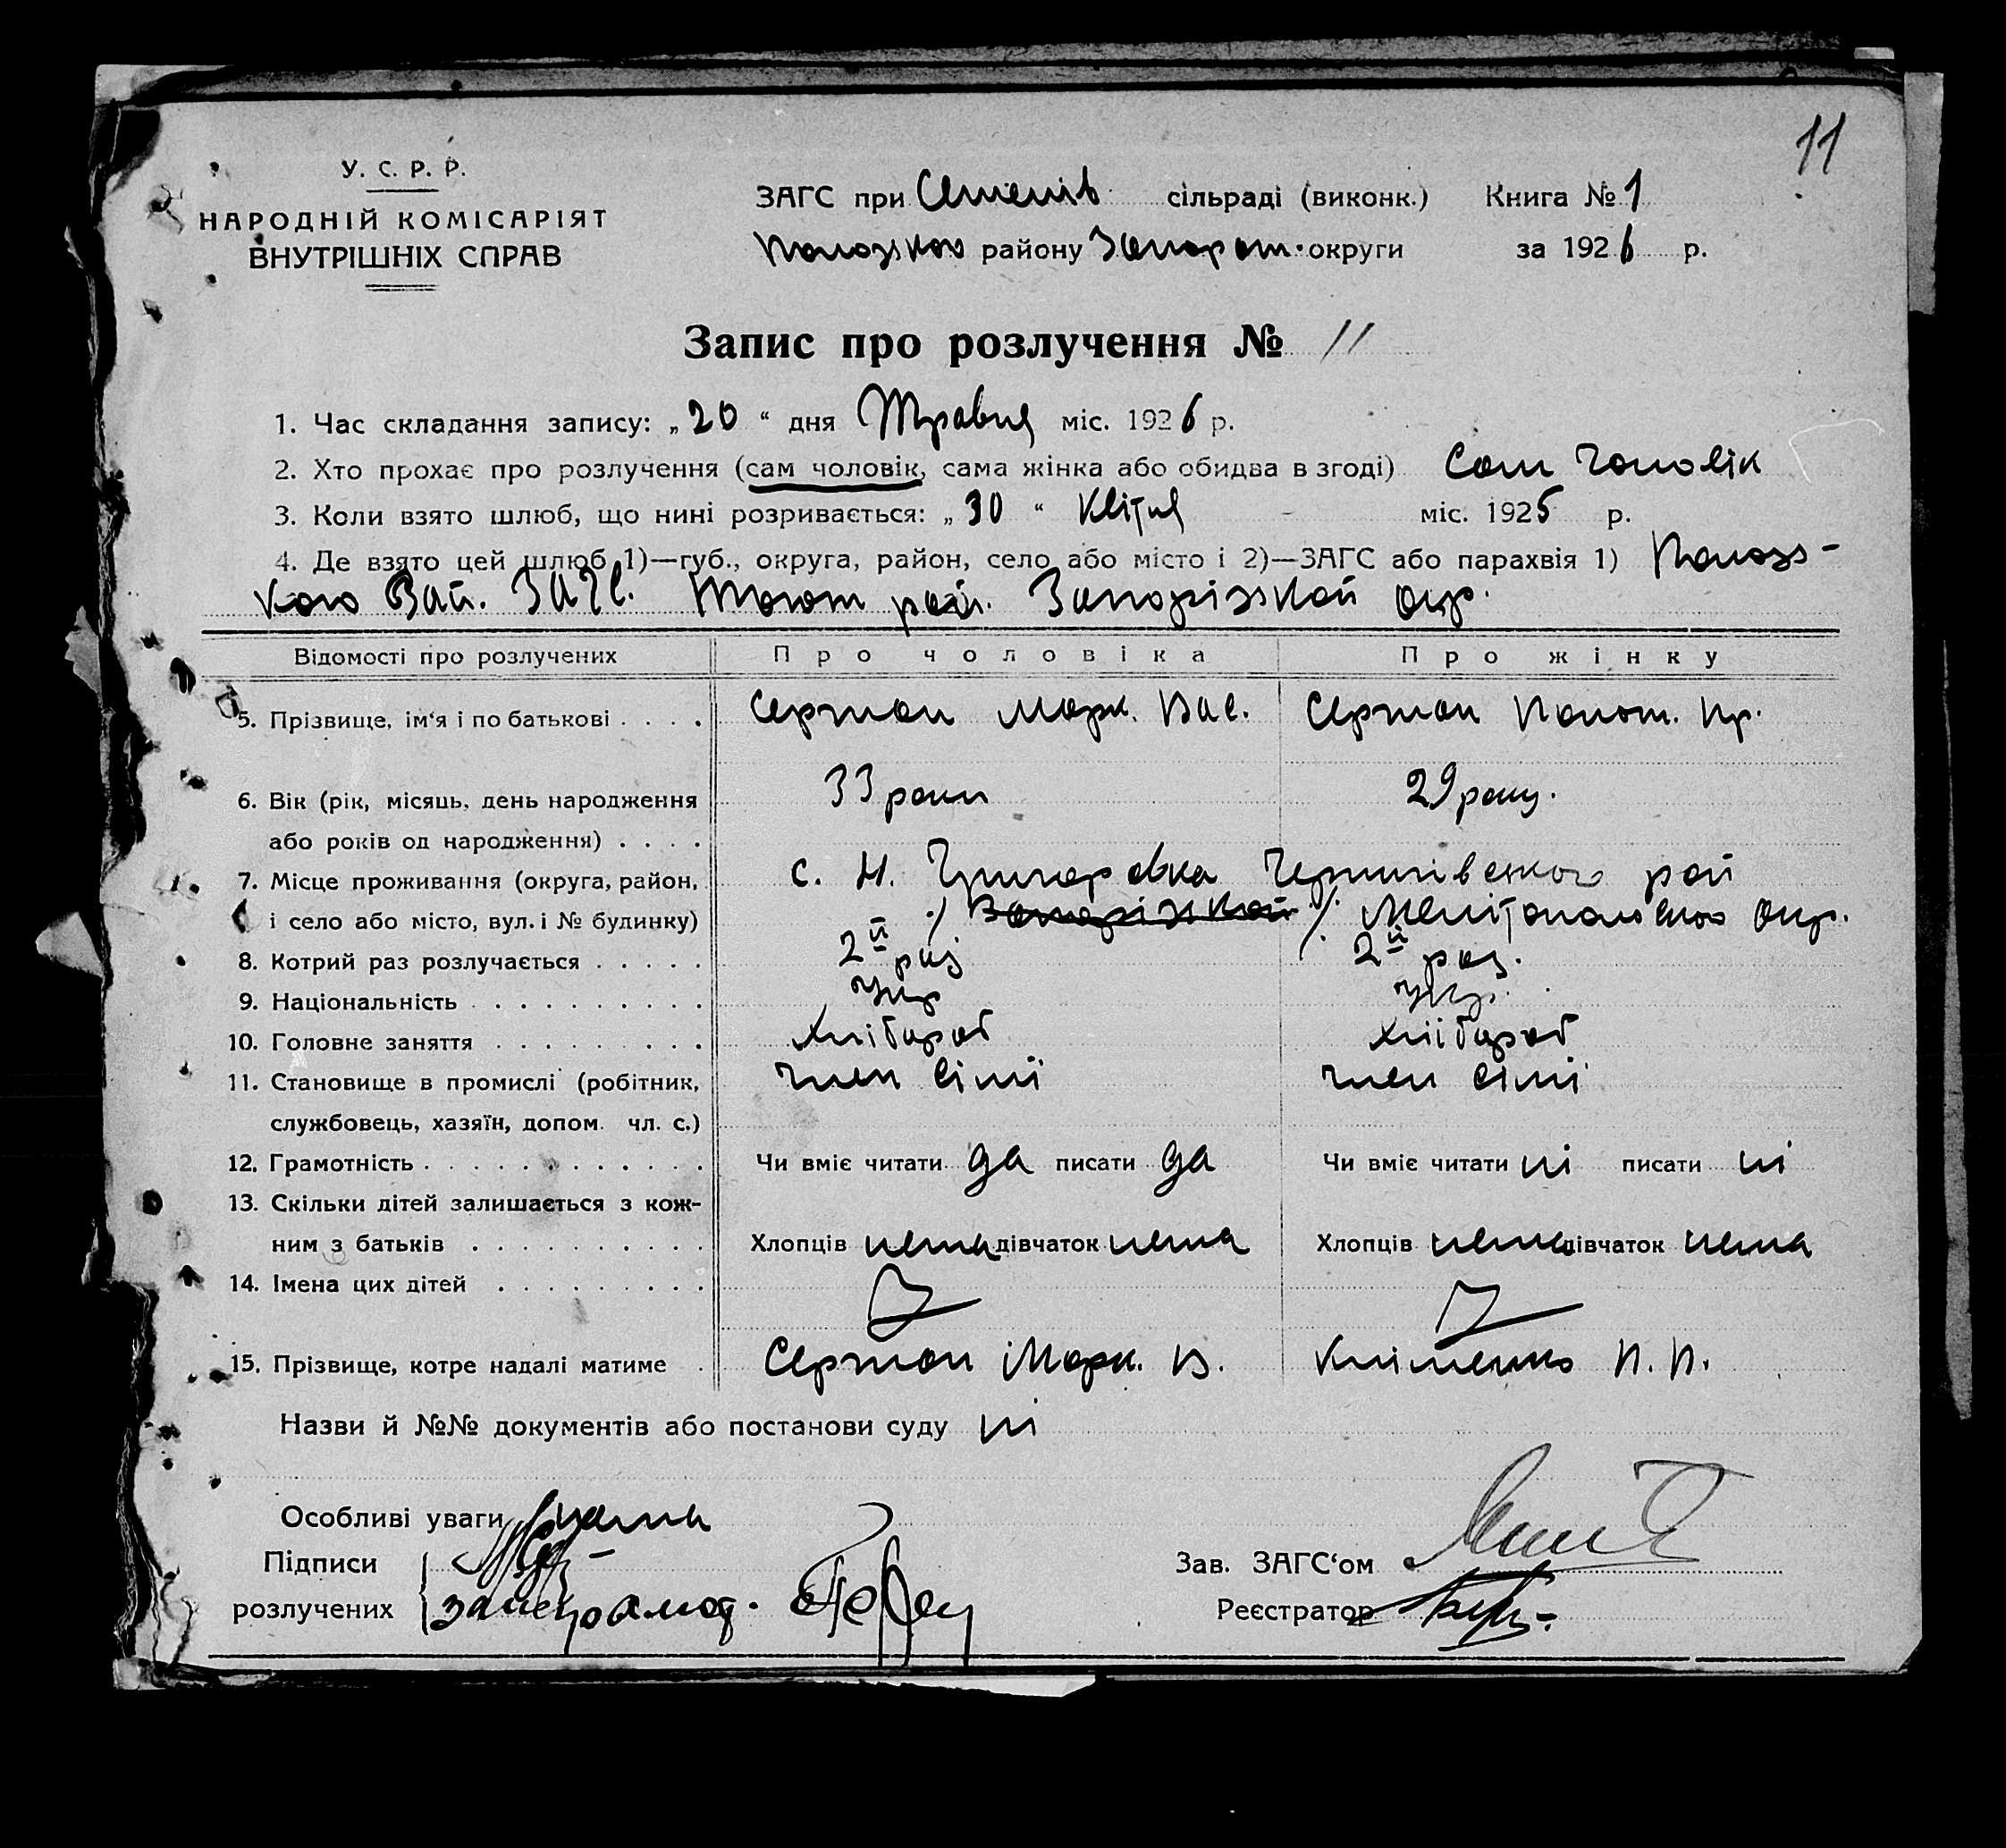 11
У. С. Р. Р.
НАРОДНІЙ КОМІСАРІЯТ
ВНУТРІШНІХ СПРАВ
ЗАГС при Семенів сільраді (виконк.) Книга № 1
району Запорож. округи за 1926 р.
Запис про розлучення № 11
1. Час складання запису: „20“ дня Травня міс. 1926 р.
2. Хто прохає про розлучення (сам чоловік, сама жінка або обидва в згоді) Сам чоловік
3. Коли взято шлюб, що нині розривається: „30“ Квітня міс. 1925 р.
4. Де взято цей шлюб 1)—губ., округа, район, село або місто і 2)—ЗАГС або парахвія 1)
кого Рай. ЗАГС. рай. Запорізькой окр.
Відомості про розлучених Про чоловіка Про жінку
5. Прізвище, ім‘я і по батькові . . . . Сержан Марк. Вас. Сержан Пр.
6. Вік (рік, місяць, день народження 33 роки 29 року.
або років од народження) . . . .
7. Місце проживання (округа, район, с. Н. Григоровка Чернигівського рай
і село або місто, вул. і № будинку) Запорізькой Меліто­польського Окр.
8. Котрий раз розлучається . . . . . 2й раз 2й раз.
9. Національність . . . . . . . . . . Укр Укр.
10. Головне заняття . . . . . . . . . Хлібароб хліібароб
11. Становище в промислі (робітник, член сімї член сімі
службовець, хазяїн, допом. чл. с.)
12. Грамотність . . . . . . . . . . . . Чи вміє читати да писати да Чи вміє читати ні писати ні
13. Скільки дітей залишається з кож-
ним з батьків . . . . . . . . . . Хлопців нема дівчаток нема Хлопців нема дівчаток нема
14. Імена цих дітей . . . . . . . . .
15. Прізвище, котре надалі матиме . Сержан Марк. В. Кліменко П. П.
Назви й №№ документів або постанови суду ні
Особливі уваги
Підписи
розлучених за неграмот.
Зав. ЗАГС‘ом
Реєстратор